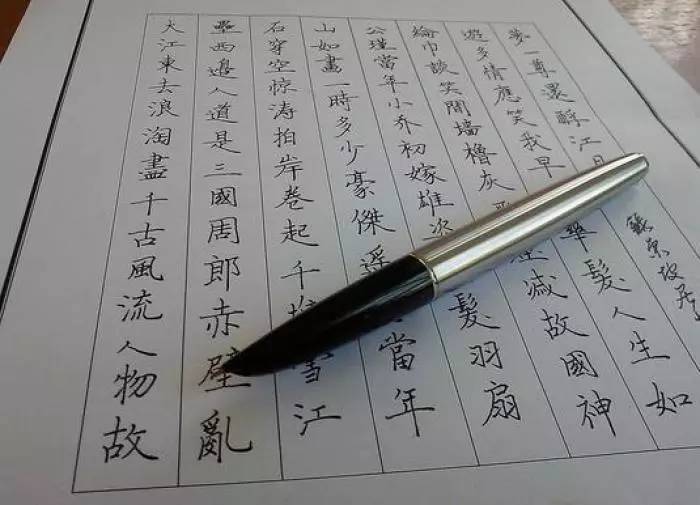 大江東去浪淘盡千古風流人物故
壘西邊人道是三國周郎赤壁亂
石穿空惊涛拍岸卷起千堆雪江
山如畫一時多少豪傑遥當年
公瑾當年小乔初嫁雄姿髮羽扇
綸巾談笑間墙櫓灰减故國神
遊多情應笑我早華髮人生如
夢一尊還酹江月